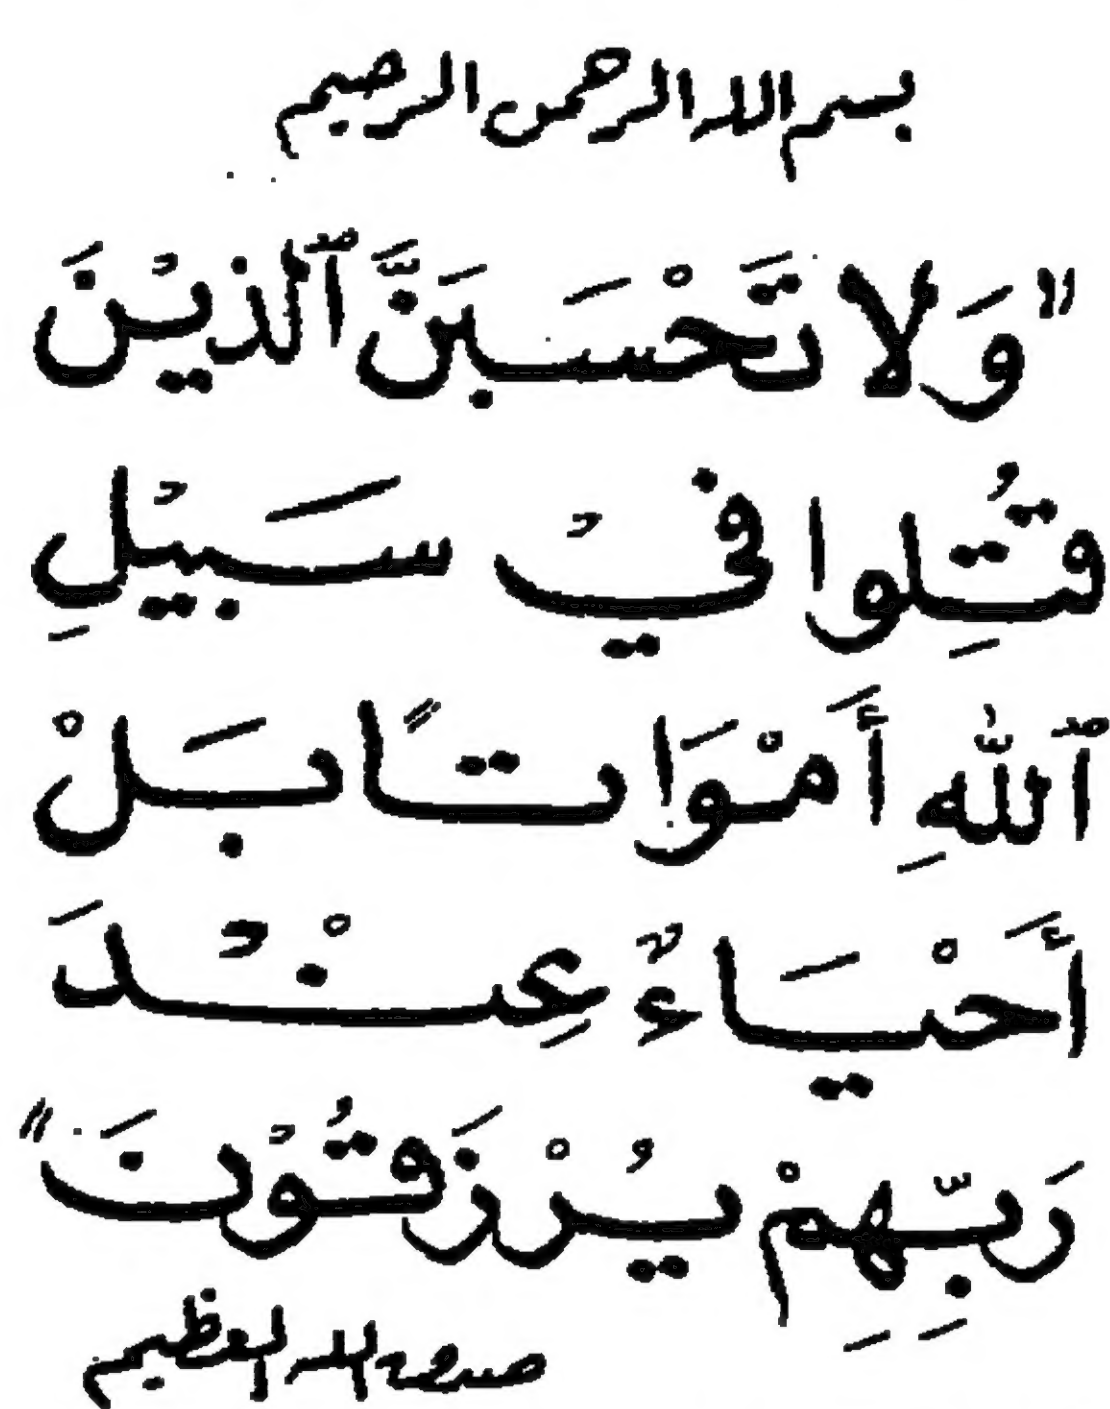 بسم الله الرحمن الرحيم
"وَلَا تَحْسَبَنَّ ٱلذيْنَ
قُتِلوا فيْ سَبَيْلِ
ٱللّٰهِ أَمْوَاتًا بَلْ
أَحْيَاءٌ عِنْدَ
رَبِّهِمْ يُرْزَقُوْنَ"
صدق الله العظيم